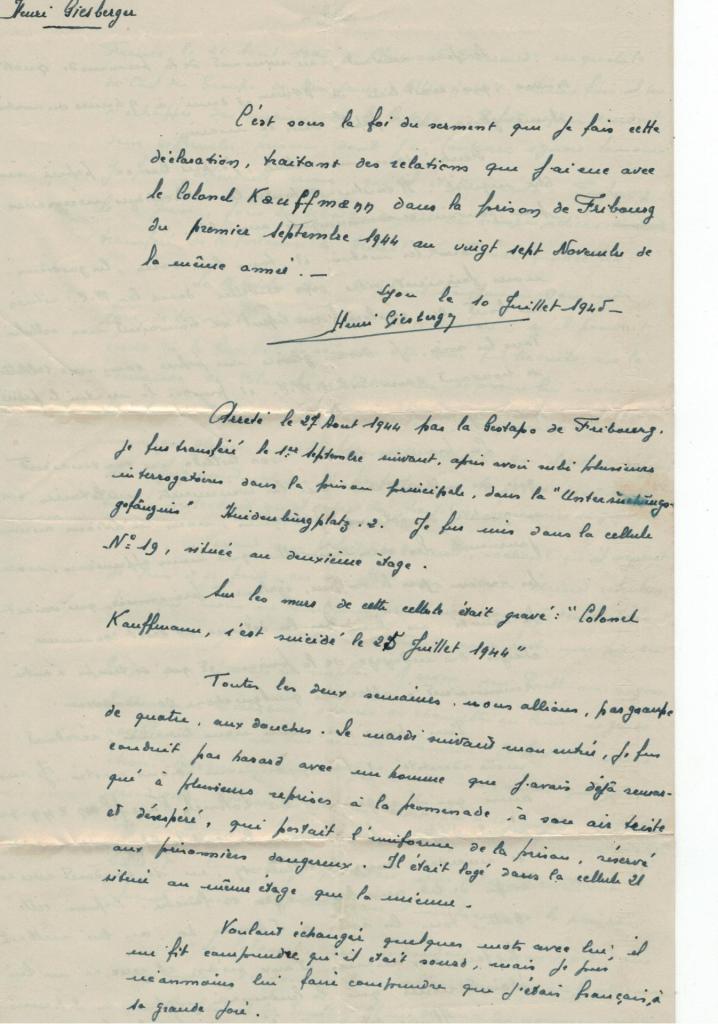 Henri Giesberger
C'est sous la foi du serment que je fais cette
déclaration, traitant des relations que j'ai eue avec
le Colonel Kauffmann dans la prison de Fribourg
du premier septembre 1944 au vingt sept Novembre de
la même année. —
Lyon le 10 Juillet 1945 —
Henri Giesberger
Arreté le 27 Aout 1944 par la Gestapo de Fribourg.
je fus transféré le 1er septembre suivant, après avoir subi plusieurs
interrogatoires dans la prison principale, dans la "Untersuchungs-
gefängnis" Hindenburgplatz. 2. Je fus mis dans la cellule
N° 19, située au deuxième étage.
Sur les murs de cette cellule était gravé: "Colonel
Kauffmann, s'est suicidé le 25 Juillet 1944"
Toutes les deux semaines, nous allions, par groupe
de quatre, aux douches. Le mardi suivant mon entrée, je fus
conduit par hasard avec un homme que j'avais déjà remar-
qué à plusieurs reprises à la promenade, à son air triste
et désespéré, qui portait l'uniforme de la prison, réservé
aux prisonniers dangereux. Il était logé dans la cellule 21
situé au même étage que la mienne.
Voulant échanger quelques mots avec lui, il
me fit comprendre qu'il était sourd, mais je pus
néanmoins lui faire comprendre que j'étais français, à
sa grande joie.